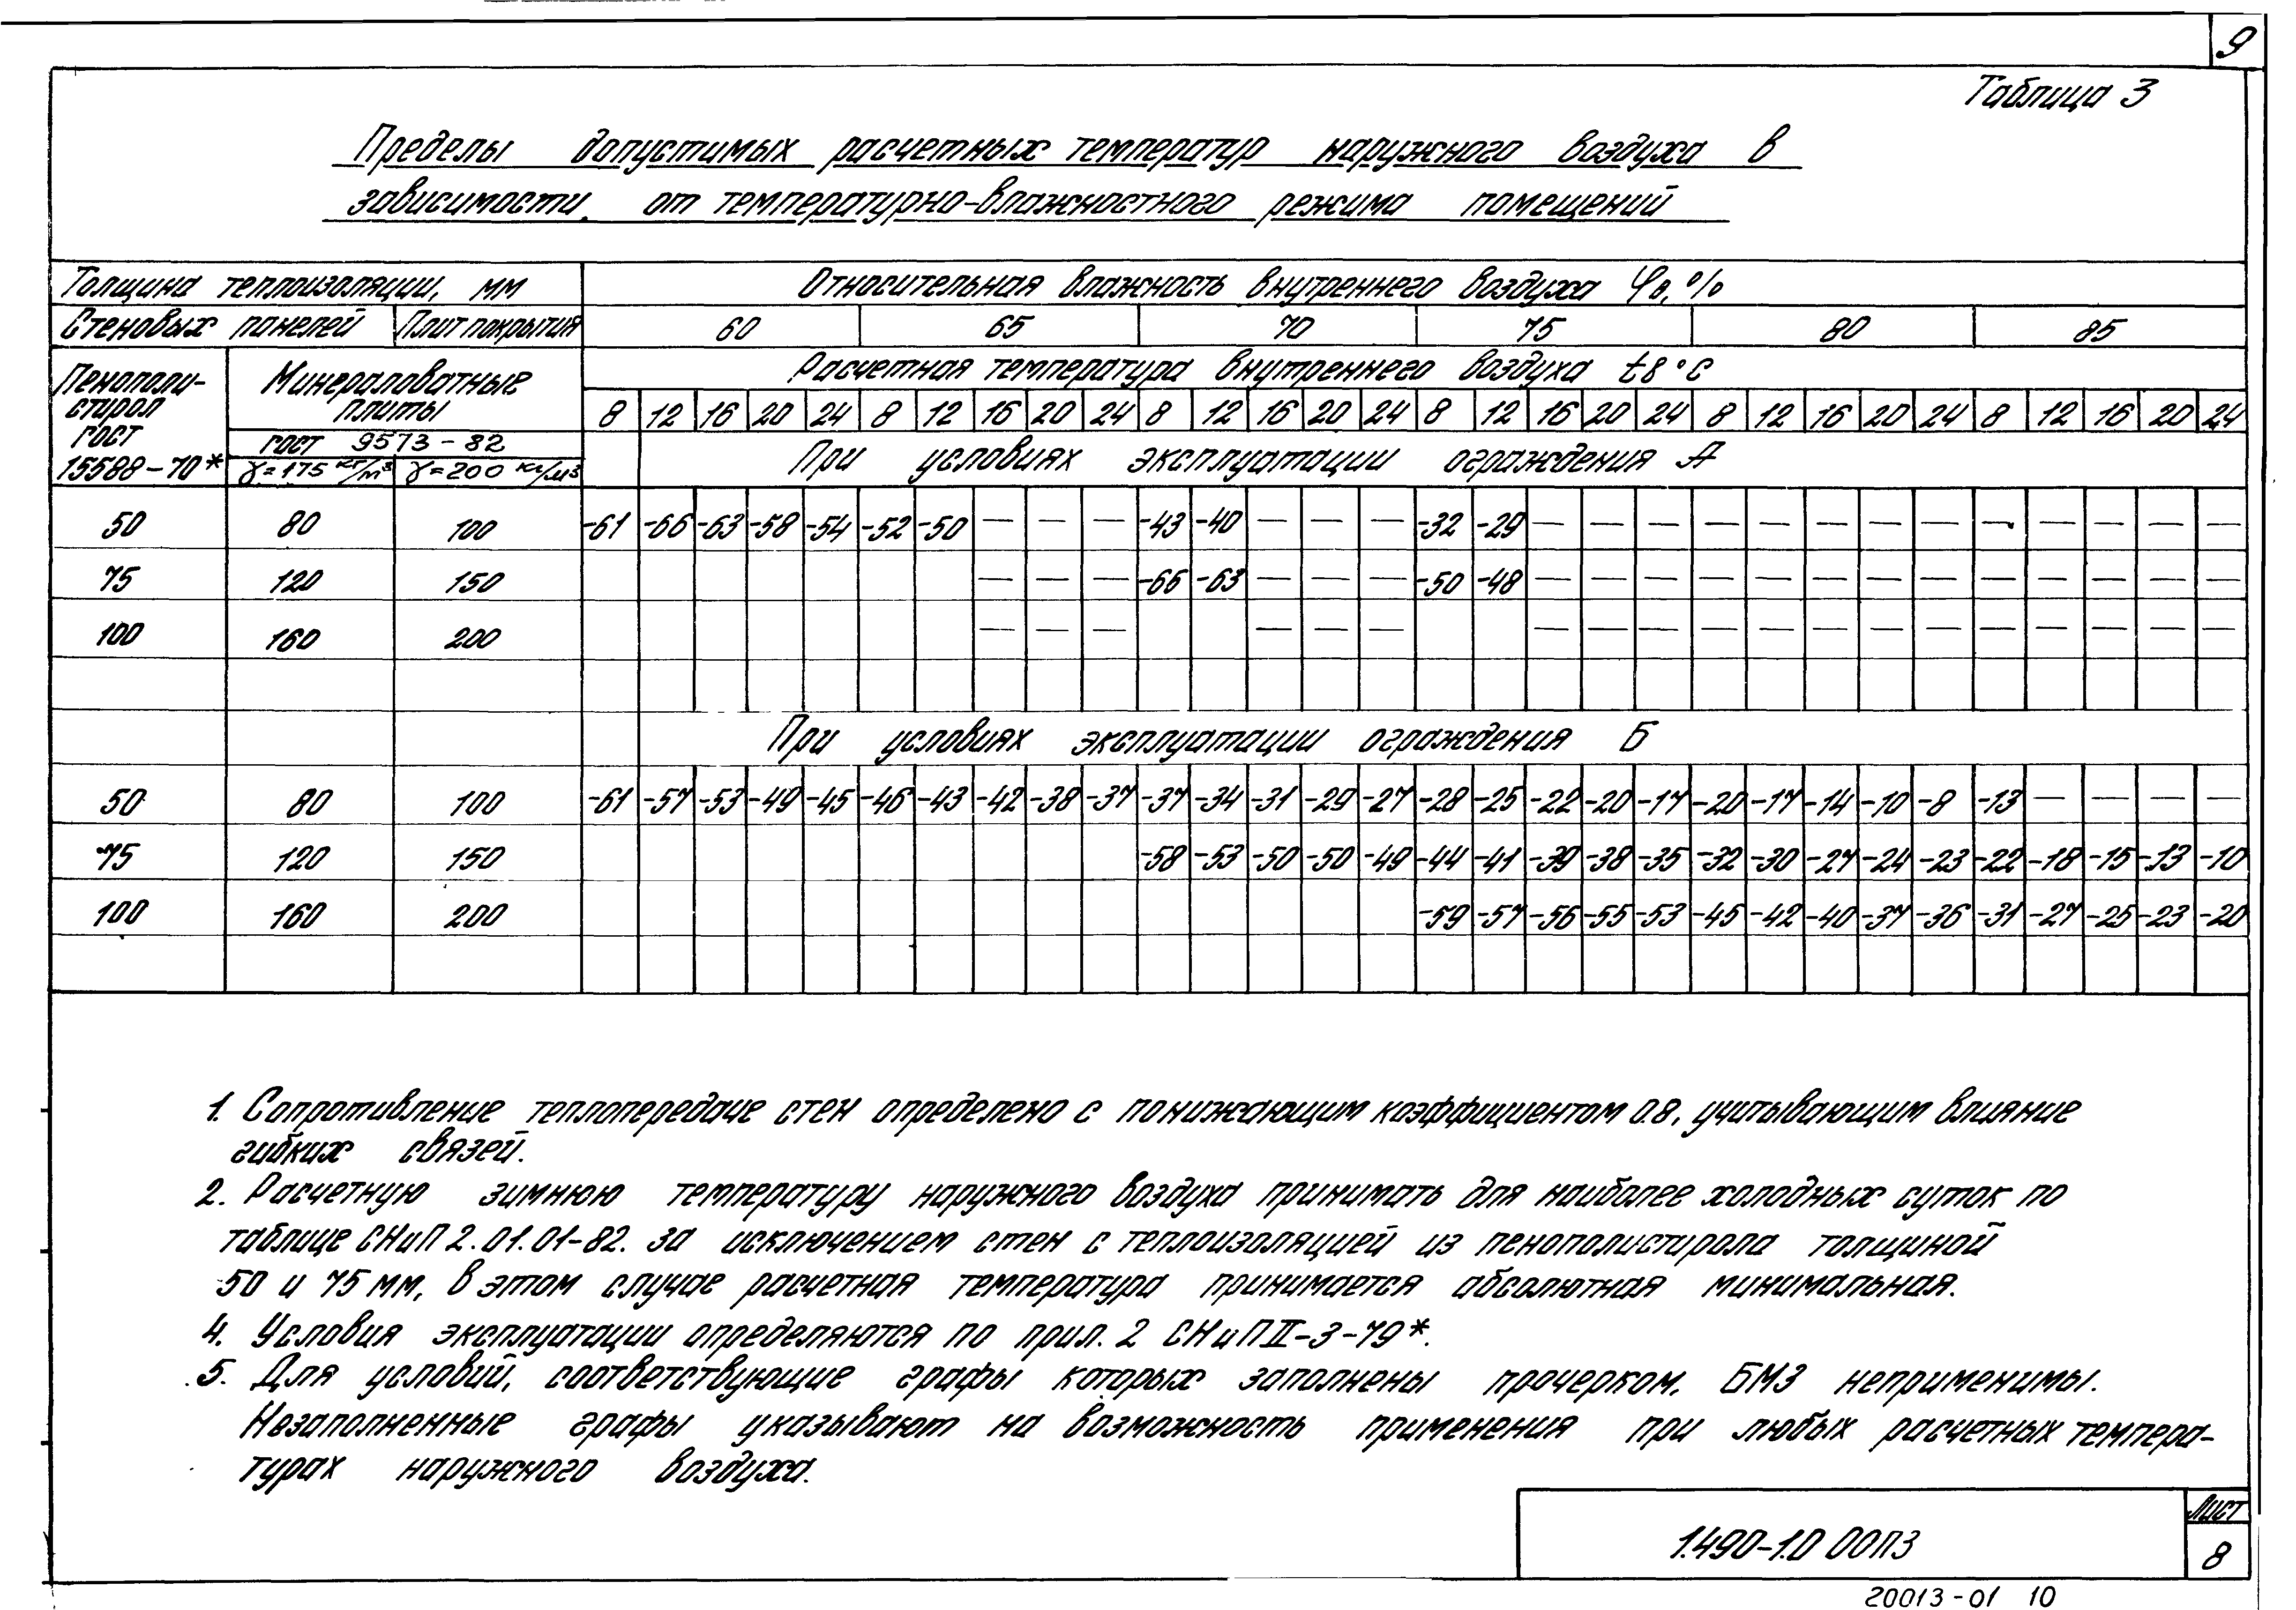 9
Таблица 3
Пределы допустимых расчетных температур наружного воздуха в
зависимости от температурно-влажностного режима помещений
Толщина теплоизоляции, мм Относительная влажность внутреннего воздуха φв, %
Стеновых панелей Плит покрытия 60 65 70 75 80 85
Пенополи- Минераловатные Расчетная температура внутреннего воздуха tв °С
стирол плиты 8 12 16 20 24 8 12 16 20 24 8 12 16 20 24 8 12 16 20 24 8 12 16 20 24 8 12 16 20 24
ГОСТ ГОСТ 9573-82
15588-70* γ=175 кг/м³ γ=200 кг/м³ При условиях эксплуатации ограждения А
50 80 100 -61 -66 -63 -58 -54 -52 -50 — — — -43 -40 — — — -32 -29 — — — — — — — — — — — — —
75 120 150 — — — -66 -63 — — — -50 -48 — — — — — — — — — — — — —
100 160 200 — — — — — — — — — — — — — — — — — — —
При условиях эксплуатации ограждения Б
50 80 100 -61 -57 -53 -49 -45 -46 -43 -42 -38 -37 -37 -34 -31 -29 -27 -28 -25 -22 -20 -17 -20 -17 -14 -10 -8 -13 — — — —
75 120 150 -58 -53 -50 -50 -49 -44 -41 -39 -38 -35 -32 -30 -27 -24 -23 -22 -18 -15 -13 -10
100 160 200 -59 -57 -56 -55 -53 -45 -42 -40 -37 -36 -31 -27 -25 -23 -20
1. Сопротивление теплопередаче стен определено с понижающим коэффициентом 0.8, учитывающим влияние
гибких связей.
2. Расчетную зимнюю температуру наружного воздуха принимать для наиболее холодных суток по
таблице СНиП 2.01.01-82. за исключением стен с теплоизоляцией из пенополистирола толщиной
50 и 75 мм, в этом случае расчетная температура принимается абсолютная минимальная.
4. Условия эксплуатации определяются по прил. 2 СНиП II-3-79*.
5. Для условий, соответствующие графы которых заполнены прочерком, БМЗ неприменимы.
Незаполненные графы указывают на возможность применения при любых расчетных темпера-
турах наружного воздуха.
1.490-1.0 00ПЗ
Лист
8
20013-01 10